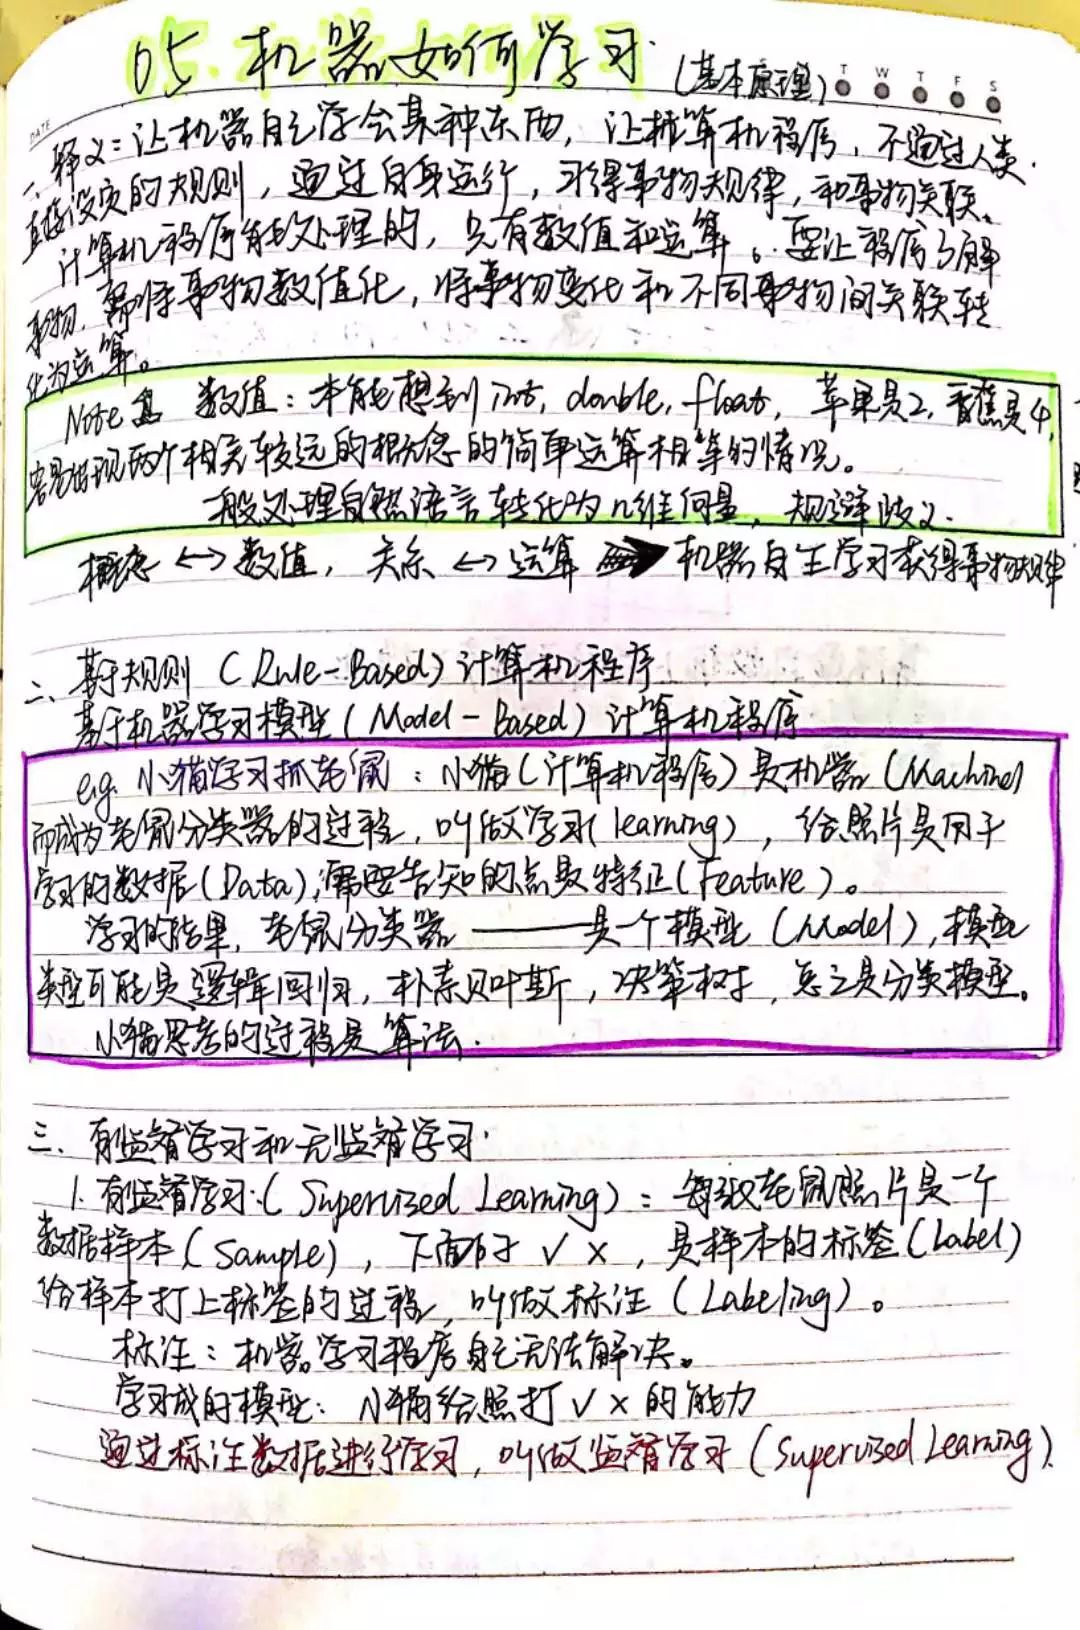 05. 机器如何学习 (基本原理)
T W T F S
DATE
一、释义:让机器自己学会某种东西,让计算机程序,不通过人类
直接设定的规则,通过自身运行,习得事物规律,和事物关联。
计算机程序能处理的,只有数值和运算。要让程序了解
事物,需将事物数值化,将事物变化和不同事物间关联转
化为运算。
Note 数值:本能想到 int, double, float, 苹果是2,香蕉是4,
容易出现两个相关较远的概念的简单运算相等的情况。
一般处理自然语言转化为n维向量,规避歧义.
概念 ↔ 数值, 关系 ↔ 运算 → 机器自主学习获得事物规律
二、基于规则 (Rule-Based) 计算机程序
基于机器学习模型 (Model-Based) 计算机程序
e.g. 小猫学习抓老鼠:小猫(计算机程序)是机器 (Machine)
而成为老鼠分类器的过程,叫做学习(learning),给照片是用于
学习的数据(Data),需要告知的点是特征(Feature)。
学习的结果,老鼠分类器——是一个模型 (Model),模型
类型可能是逻辑回归,朴素贝叶斯,决策树,总之是分类模型。
小猫思考的过程是算法.
三、有监督学习和无监督学习.
1. 有监督学习:(Supervised Learning):每张老鼠照片是一个
数据样本(Sample),下面的 √ ×,是样本的标签(Label)
给样本打上标签的过程,叫做标注 (Labeling)。
标注:机器学习程序自己无法解决。
学习成的模型:小猫给照打 √ × 的能力
通过标注数据进行学习,叫做监督学习 (Supervised Learning).